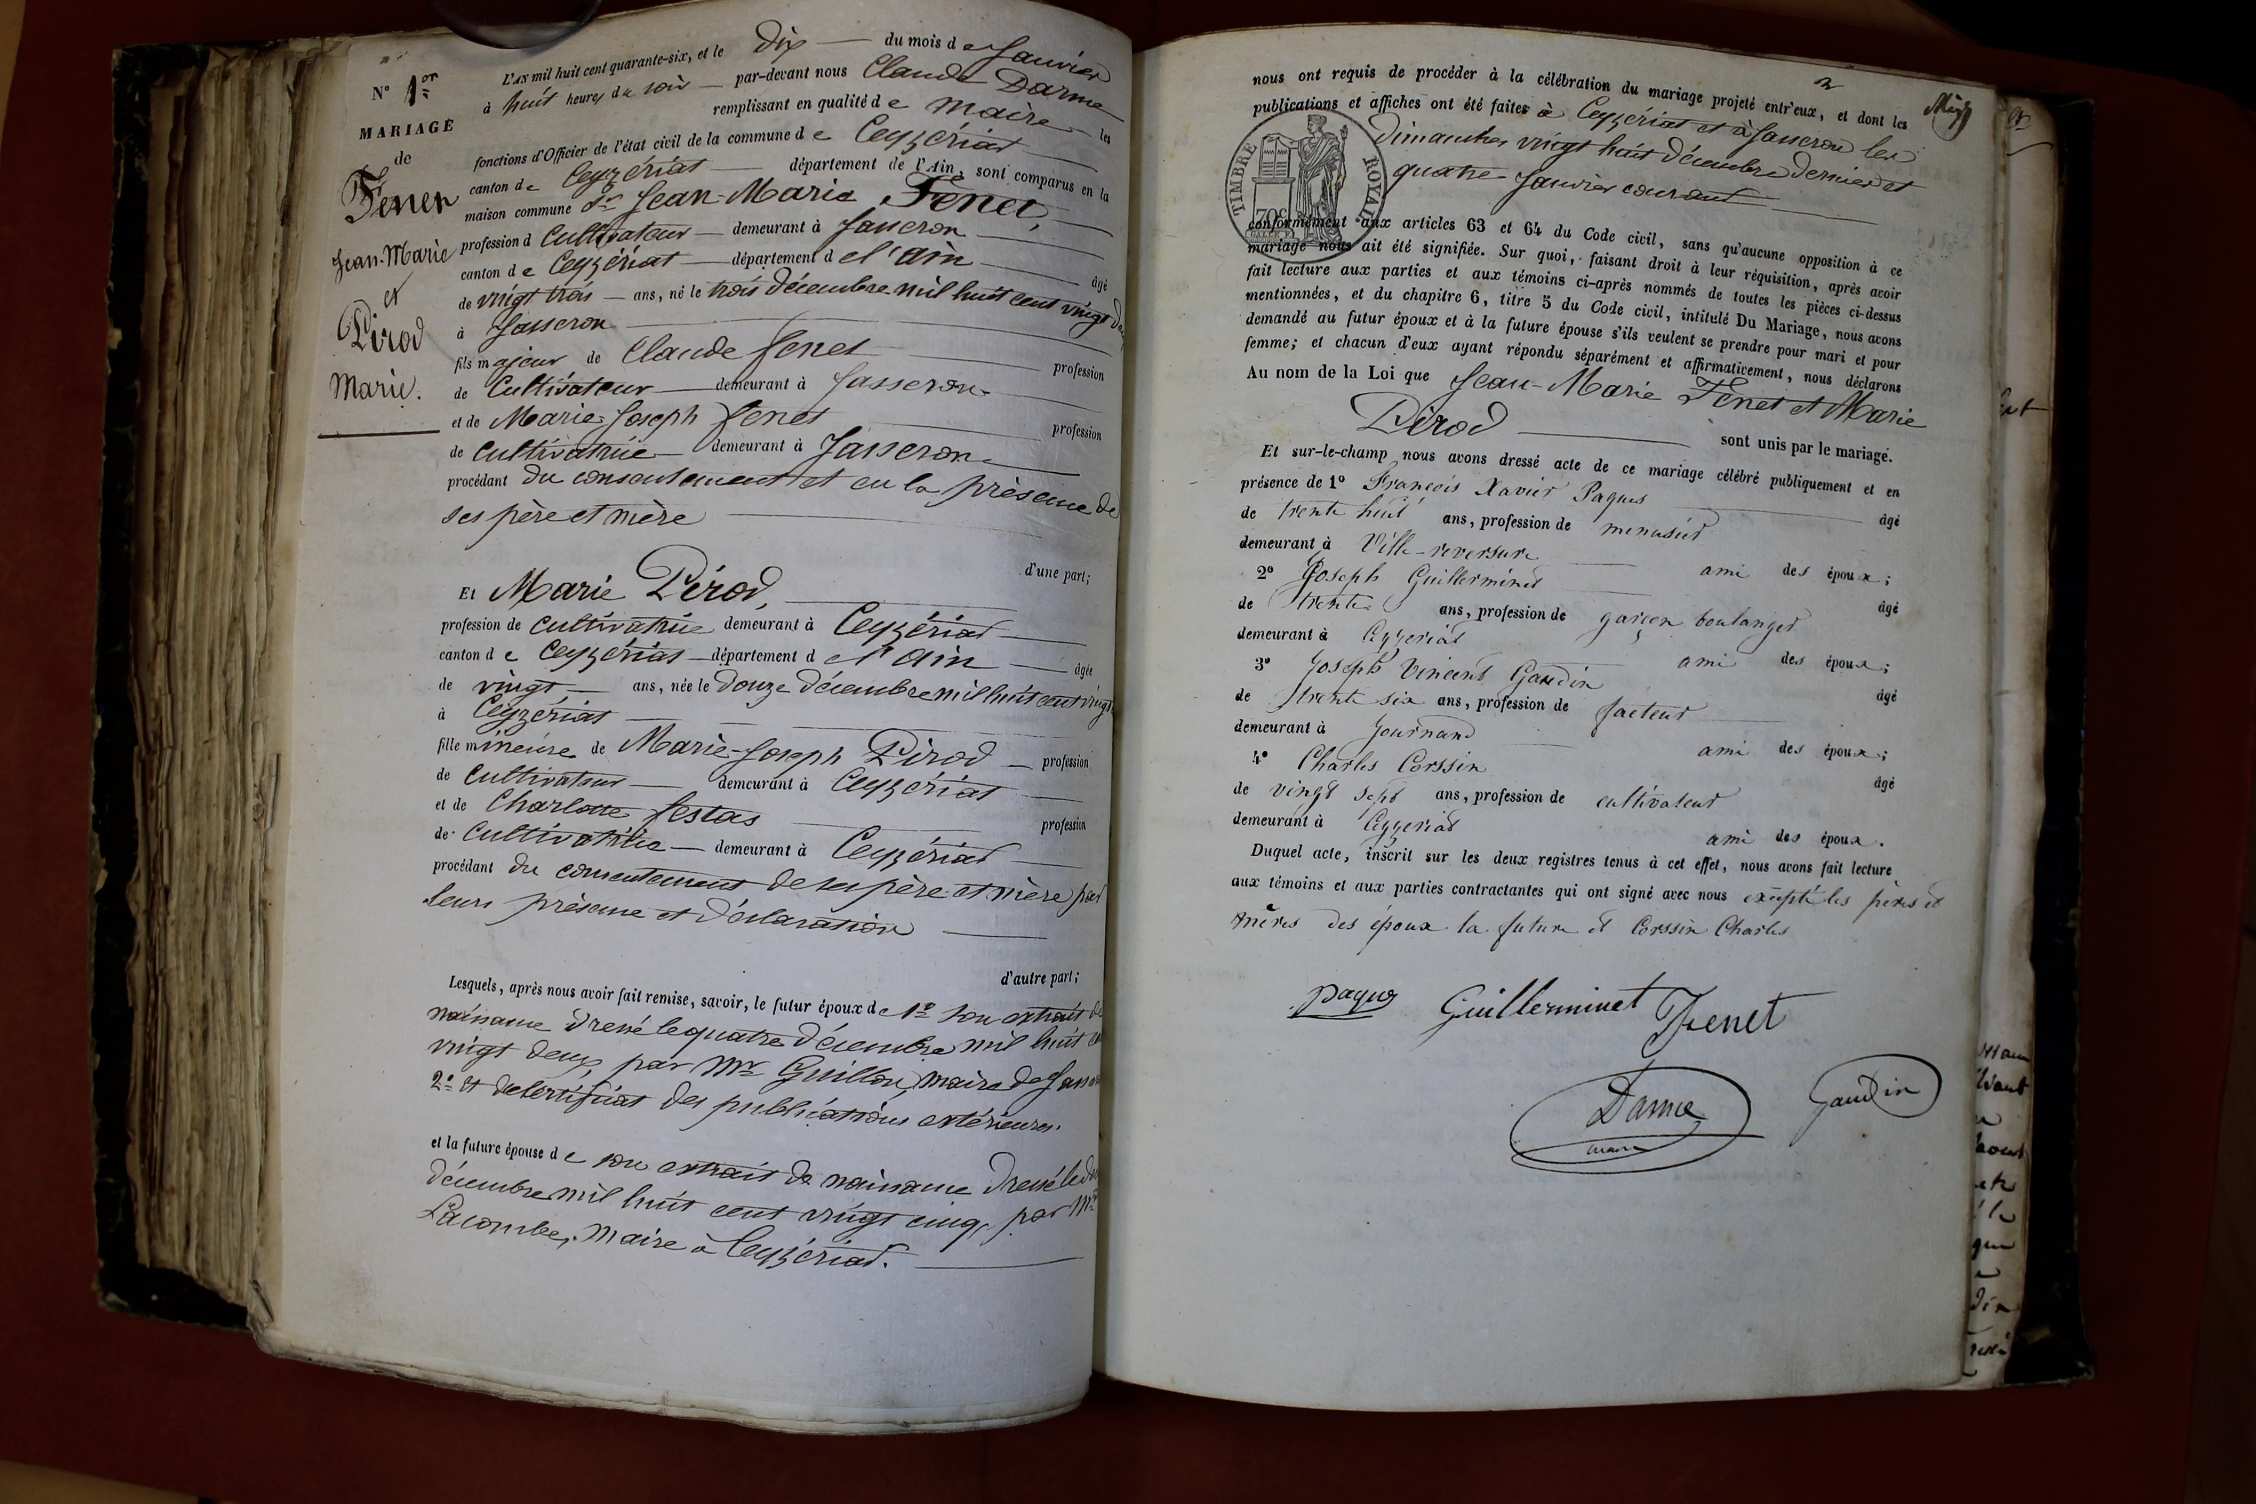 N° 1er
MARIAGE
de
Fenet
Jean-Marie
et
Pirod
Marie.
L'AN mil huit cent quarante-six, et le dix du mois de Janvier
à huit heures du soir par-devant nous Claude Darme
remplissant en qualité de maire les
fonctions d'Officier de l'état civil de la commune de Ceyzériat
canton de Ceyzériat département de l'Ain, sont comparus en la
maison commune Sr Jean-Marie Fenet,
profession d cultivateur demeurant à Jasseron
canton de Ceyzériat département de l'ain âgé
de vingt trois ans, né le trois décembre mil huit cent vingt deux
à Jasseron
fils majeur de Claude fenet profession
de Cultivateur demeurant à Jasseron
et de Marie-Joseph fenet profession
de cultivatrice demeurant à Jasseron
procédant du consentement et en la présence de
ses père et mère
d'une part;
Et Marie Pirod,
profession de cultivatrice demeurant à Ceyzériat
canton de Ceyzériat département de l'ain âgée
de vingt ans, née le douze décembre mil huit cent vingt
à Ceyzériat
fille mineure de Marie-Joseph Pirod profession
de cultivateur demeurant à Ceyzériat
et de Charlotte festas profession
de cultivatrice demeurant à Ceyzériat
procédant du consentement de ses père et mère par
leurs présence et déclaration
d'autre part;
Lesquels, après nous avoir fait remise, savoir, le futur époux de 1° son extrait de
naissance dressé le quatre décembre mil huit
vingt deux par Mr Guillon, maire de
2° et de certificat des publications extérieures.
et la future épouse de son extrait de naissance dressé le
décembre mil huit cent vingt cinq, par Mr
Lacombe, Maire à Ceyzériat.
2
nous ont requis de procéder à la célébration du mariage projeté entr'eux, et dont les
publications et affiches ont été faites à Ceyzériat et à Jasseron les
dimanches vingt huit décembre dernier et
quatre Janvier courant
TIMBRE ROYAL
70c
conformément aux articles 63 et 64 du Code civil, sans qu'aucune opposition à ce
mariage nous ait été signifiée. Sur quoi, faisant droit à leur réquisition, après avoir
fait lecture aux parties et aux témoins ci-après nommés de toutes les pièces ci-dessus
mentionnées, et du chapitre 6, titre 5 du Code civil, intitulé Du Mariage, nous avons
demandé au futur époux et à la future épouse s'ils veulent se prendre pour mari et pour
femme; et chacun d'eux ayant répondu séparément et affirmativement, nous déclarons
Au nom de la Loi que Jean-Marie Fenet et Marie
Pirod sont unis par le mariage.
Et sur-le-champ nous avons dressé acte de ce mariage célébré publiquement et en
présence de 1° Francois Xavier Paques âgé
de trente huit ans, profession de menusier
demeurant à Ville-reversure ami des époux;
2° Joseph Guillerminet âgé
de trente ans, profession de garçon boulanger
demeurant à Ceyzeriat ami des époux;
3° Joseph Vincent Gaudin âgé
de trente six ans, profession de facteur
demeurant à Journand ami des époux;
4° Charles Corssin âgé
de vingt sept ans, profession de cultivateur
demeurant à Ceyzeriat ami des époux.
Duquel acte, inscrit sur les deux registres tenus à cet effet, nous avons fait lecture
aux témoins et aux parties contractantes qui ont signé avec nous excepté les pères et
mères des époux la future et Corssin Charles
Paques Guillerminet Fenet
Darme
maire
Gaudin